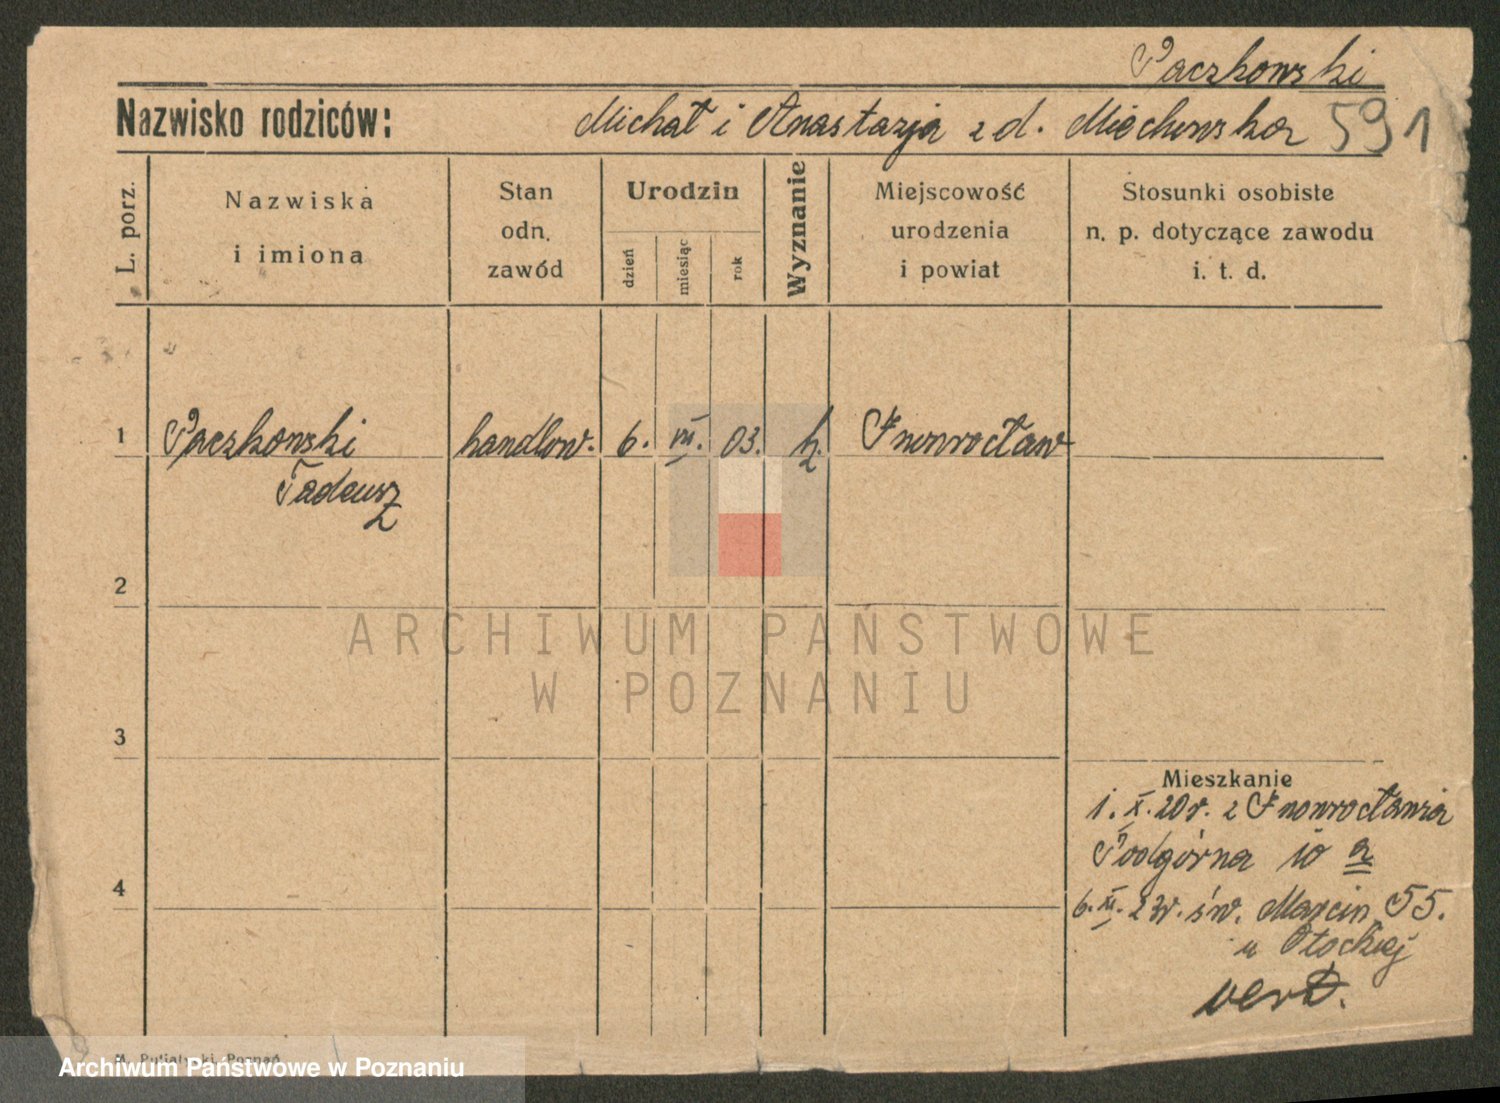 Paczkowski
Nazwisko rodziców: Michał i Anastazja z d. Miechowska 591
L. porz.
Nazwiska
i imiona
Stan
odn.
zawód
Urodzin
dzień
miesiąc
rok
Wyznanie
Miejscowość
urodzenia
i powiat
Stosunki osobiste
n. p. dotyczące zawodu
i. t. d.
1 Paczkowski handlow. 6. VII. 03. k. Inowrocław
Tadeusz
2
ARCHIWUM PAŃSTWOWE
W POZNANIU
3
Mieszkanie
1. X. 20 r. z Inowrocławia
Podgórna 10 a
4
6. XI. 23 r. św. Marcin 55.
u Otockiej
vert.
M. Putiatycki, Poznań
Archiwum Państwowe w Poznaniu